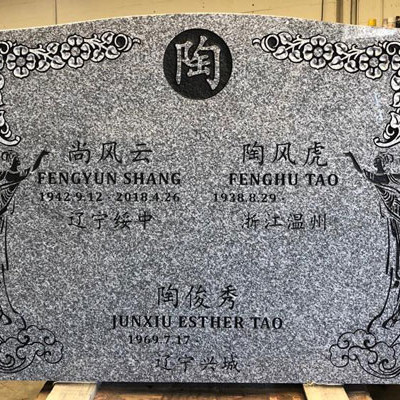 陶
尚风云 陶风虎
FENGYUN SHANG FENGHU TAO
1942.9.12 - 2018.4.26 1938.8.29 -
辽宁绥中 浙江温州
陶俊秀
JUNXIU ESTHER TAO
1969.7.17 -
辽宁兴城